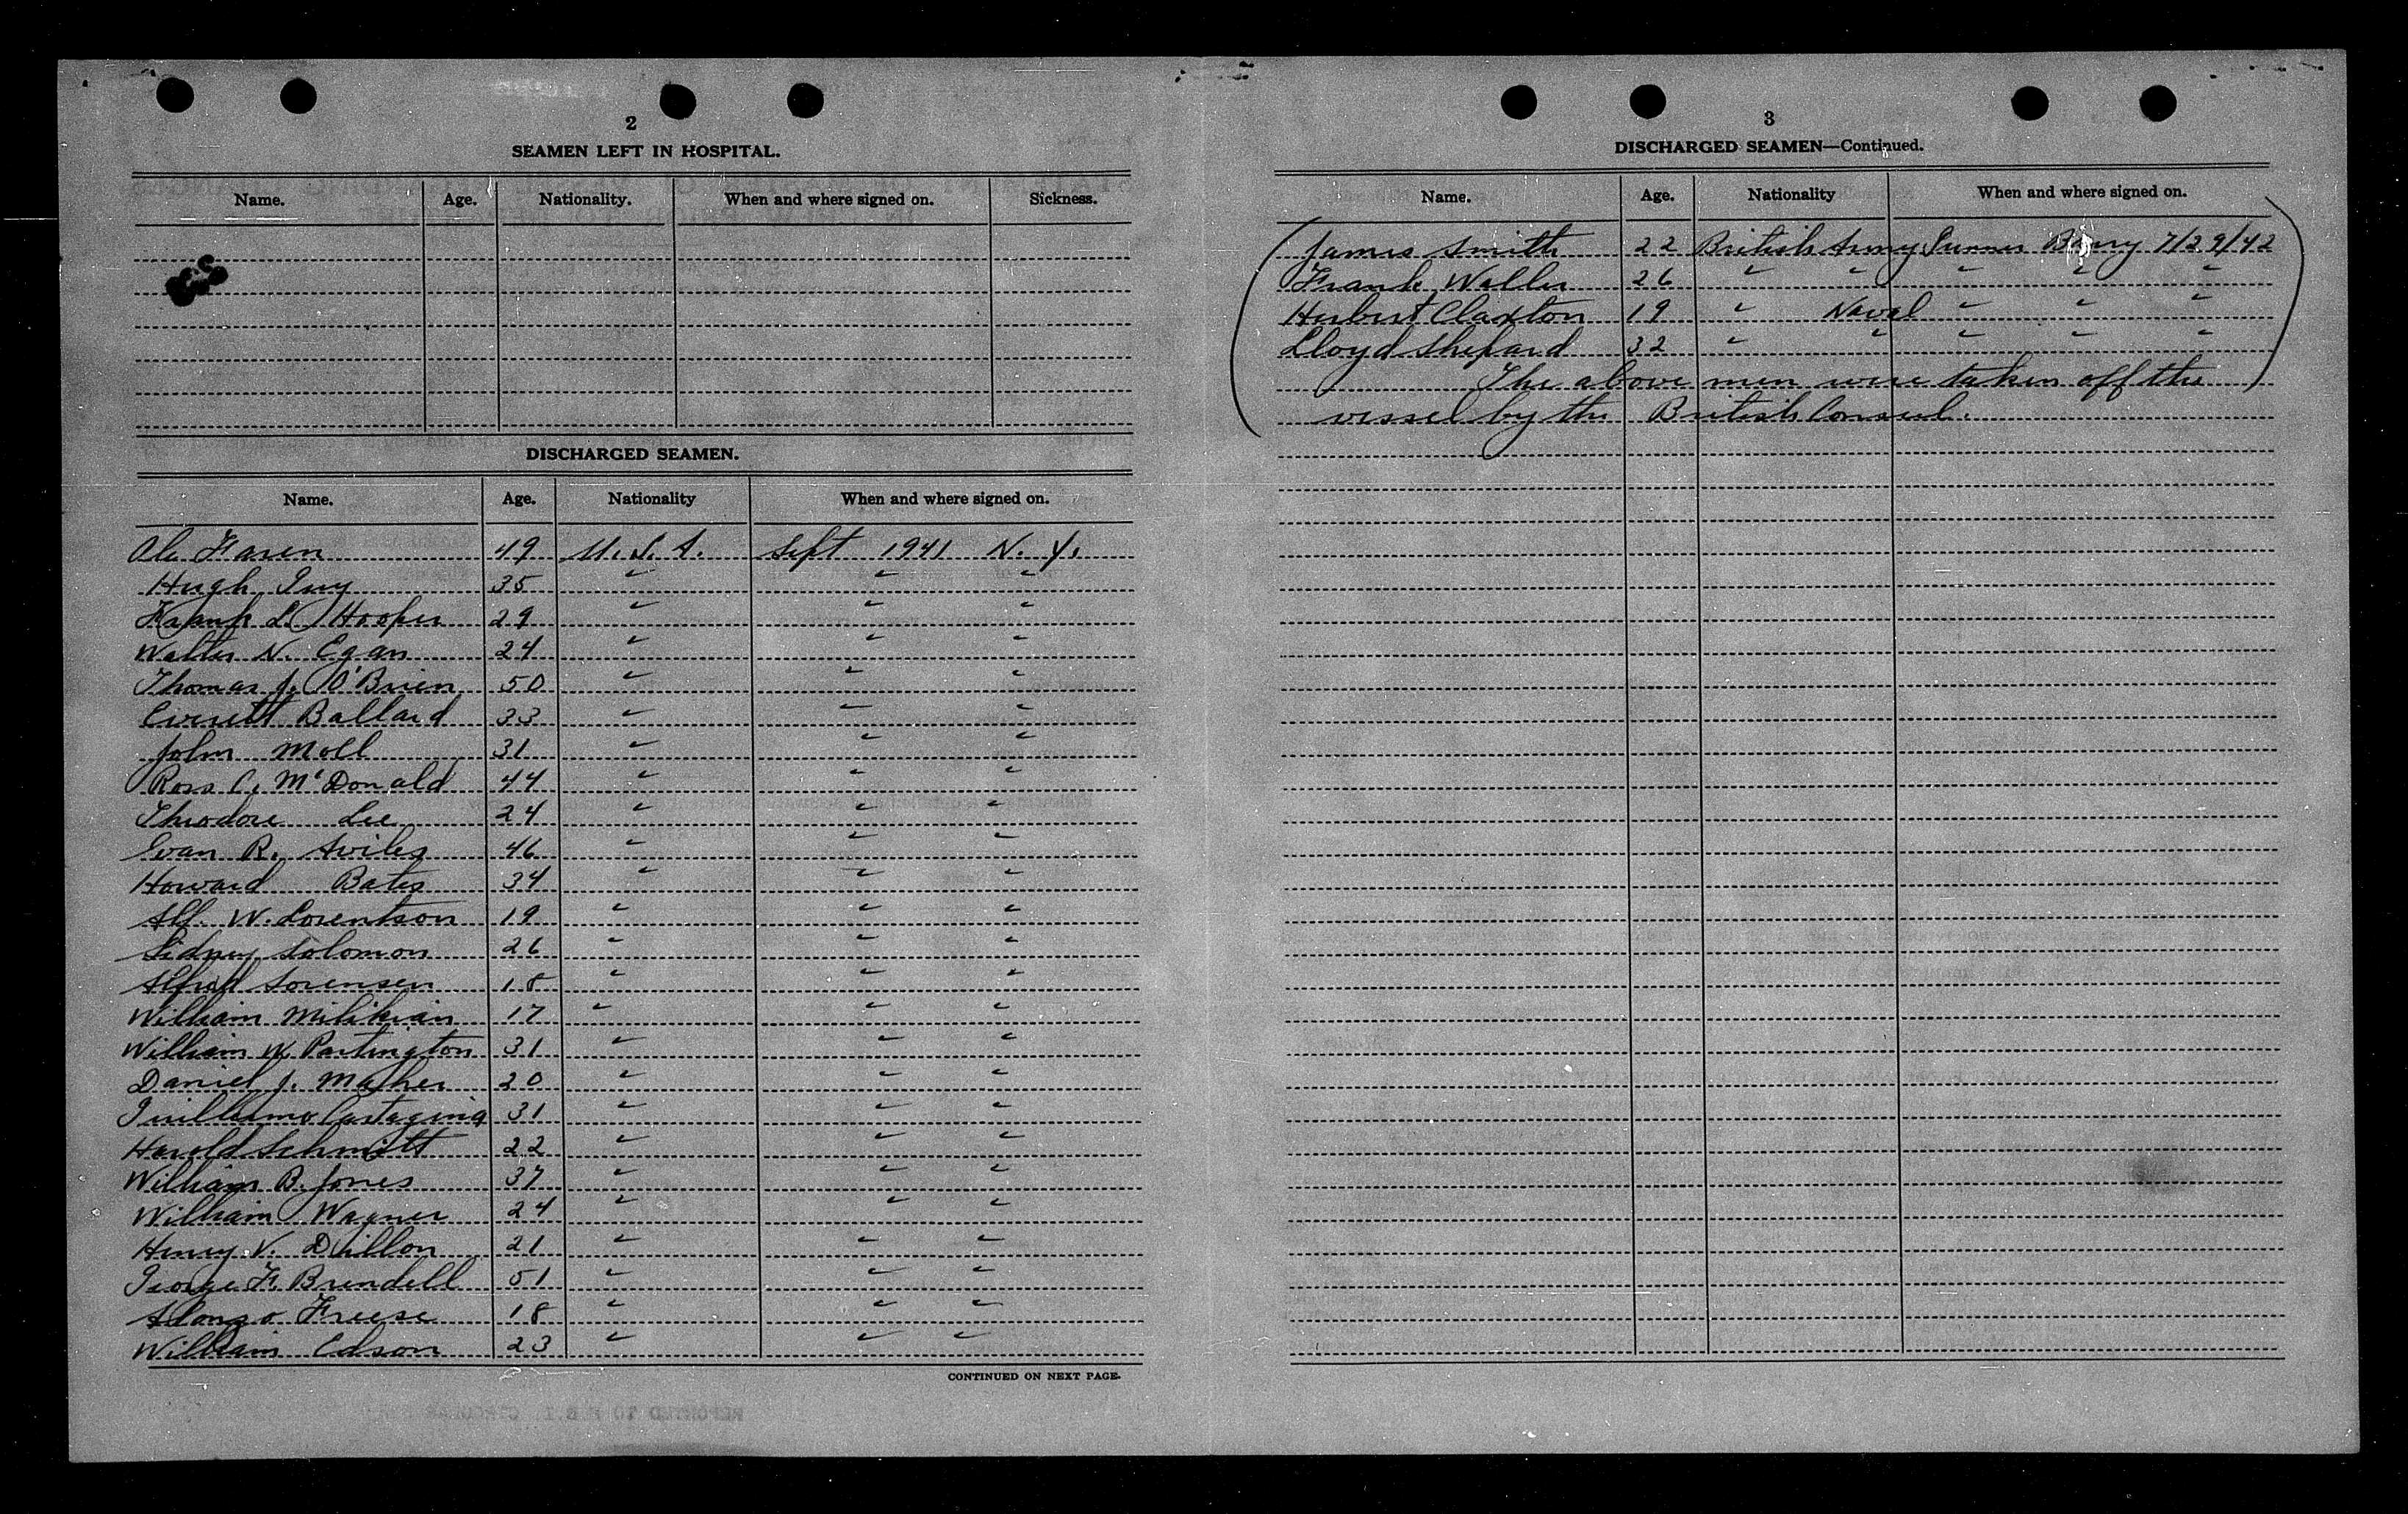 2
SEAMEN LEFT IN HOSPITAL.
Name. Age. Nationality. When and where signed on. Sickness.
DISCHARGED SEAMEN.
Name. Age. Nationality When and where signed on.
Ole Faren 49 U.S.A. Sept 1941 N.Y.
Hugh Guy 35 " " "
Frank L. Hooper 29 " " "
Walter N. Egan 24 " " "
Thomas J. O'Brien 50 " " "
Everett Ballard 33 " " "
John Moll 31 " " "
Ross C. McDonald 44 " " "
Theodore Lee 24 " " "
Evan R. Aviles 46 " " "
Howard Bates 34 " " "
Alf. W. Lorentson 19 " " "
Sidney Solomon 26 " " "
Alfred Sorensen 18 " " "
William Milikian 17 " " "
William W. Partington 31 " " "
Daniel J. Maher 20 " " "
31 " " "
Harold Schmitt 22 " " "
William B. Jones 37 " " "
William Wagner 24 " " "
Henry V. Dillon 21 " " "
George F. Brendell 51 " " "
Alonzo Freese 18 " " "
William Edson 23 " " "
CONTINUED ON NEXT PAGE.
3
DISCHARGED SEAMEN—Continued.
Name. Age. Nationality When and where signed on.
James Smith 22 British Army Gunner 7/29/42
Frank Waller 26 " " " " "
Herbert Claxton 19 " Naval " " "
Lloyd Shepard 32 " " " " "
The above men were taken off this
vessel by the British Consul.